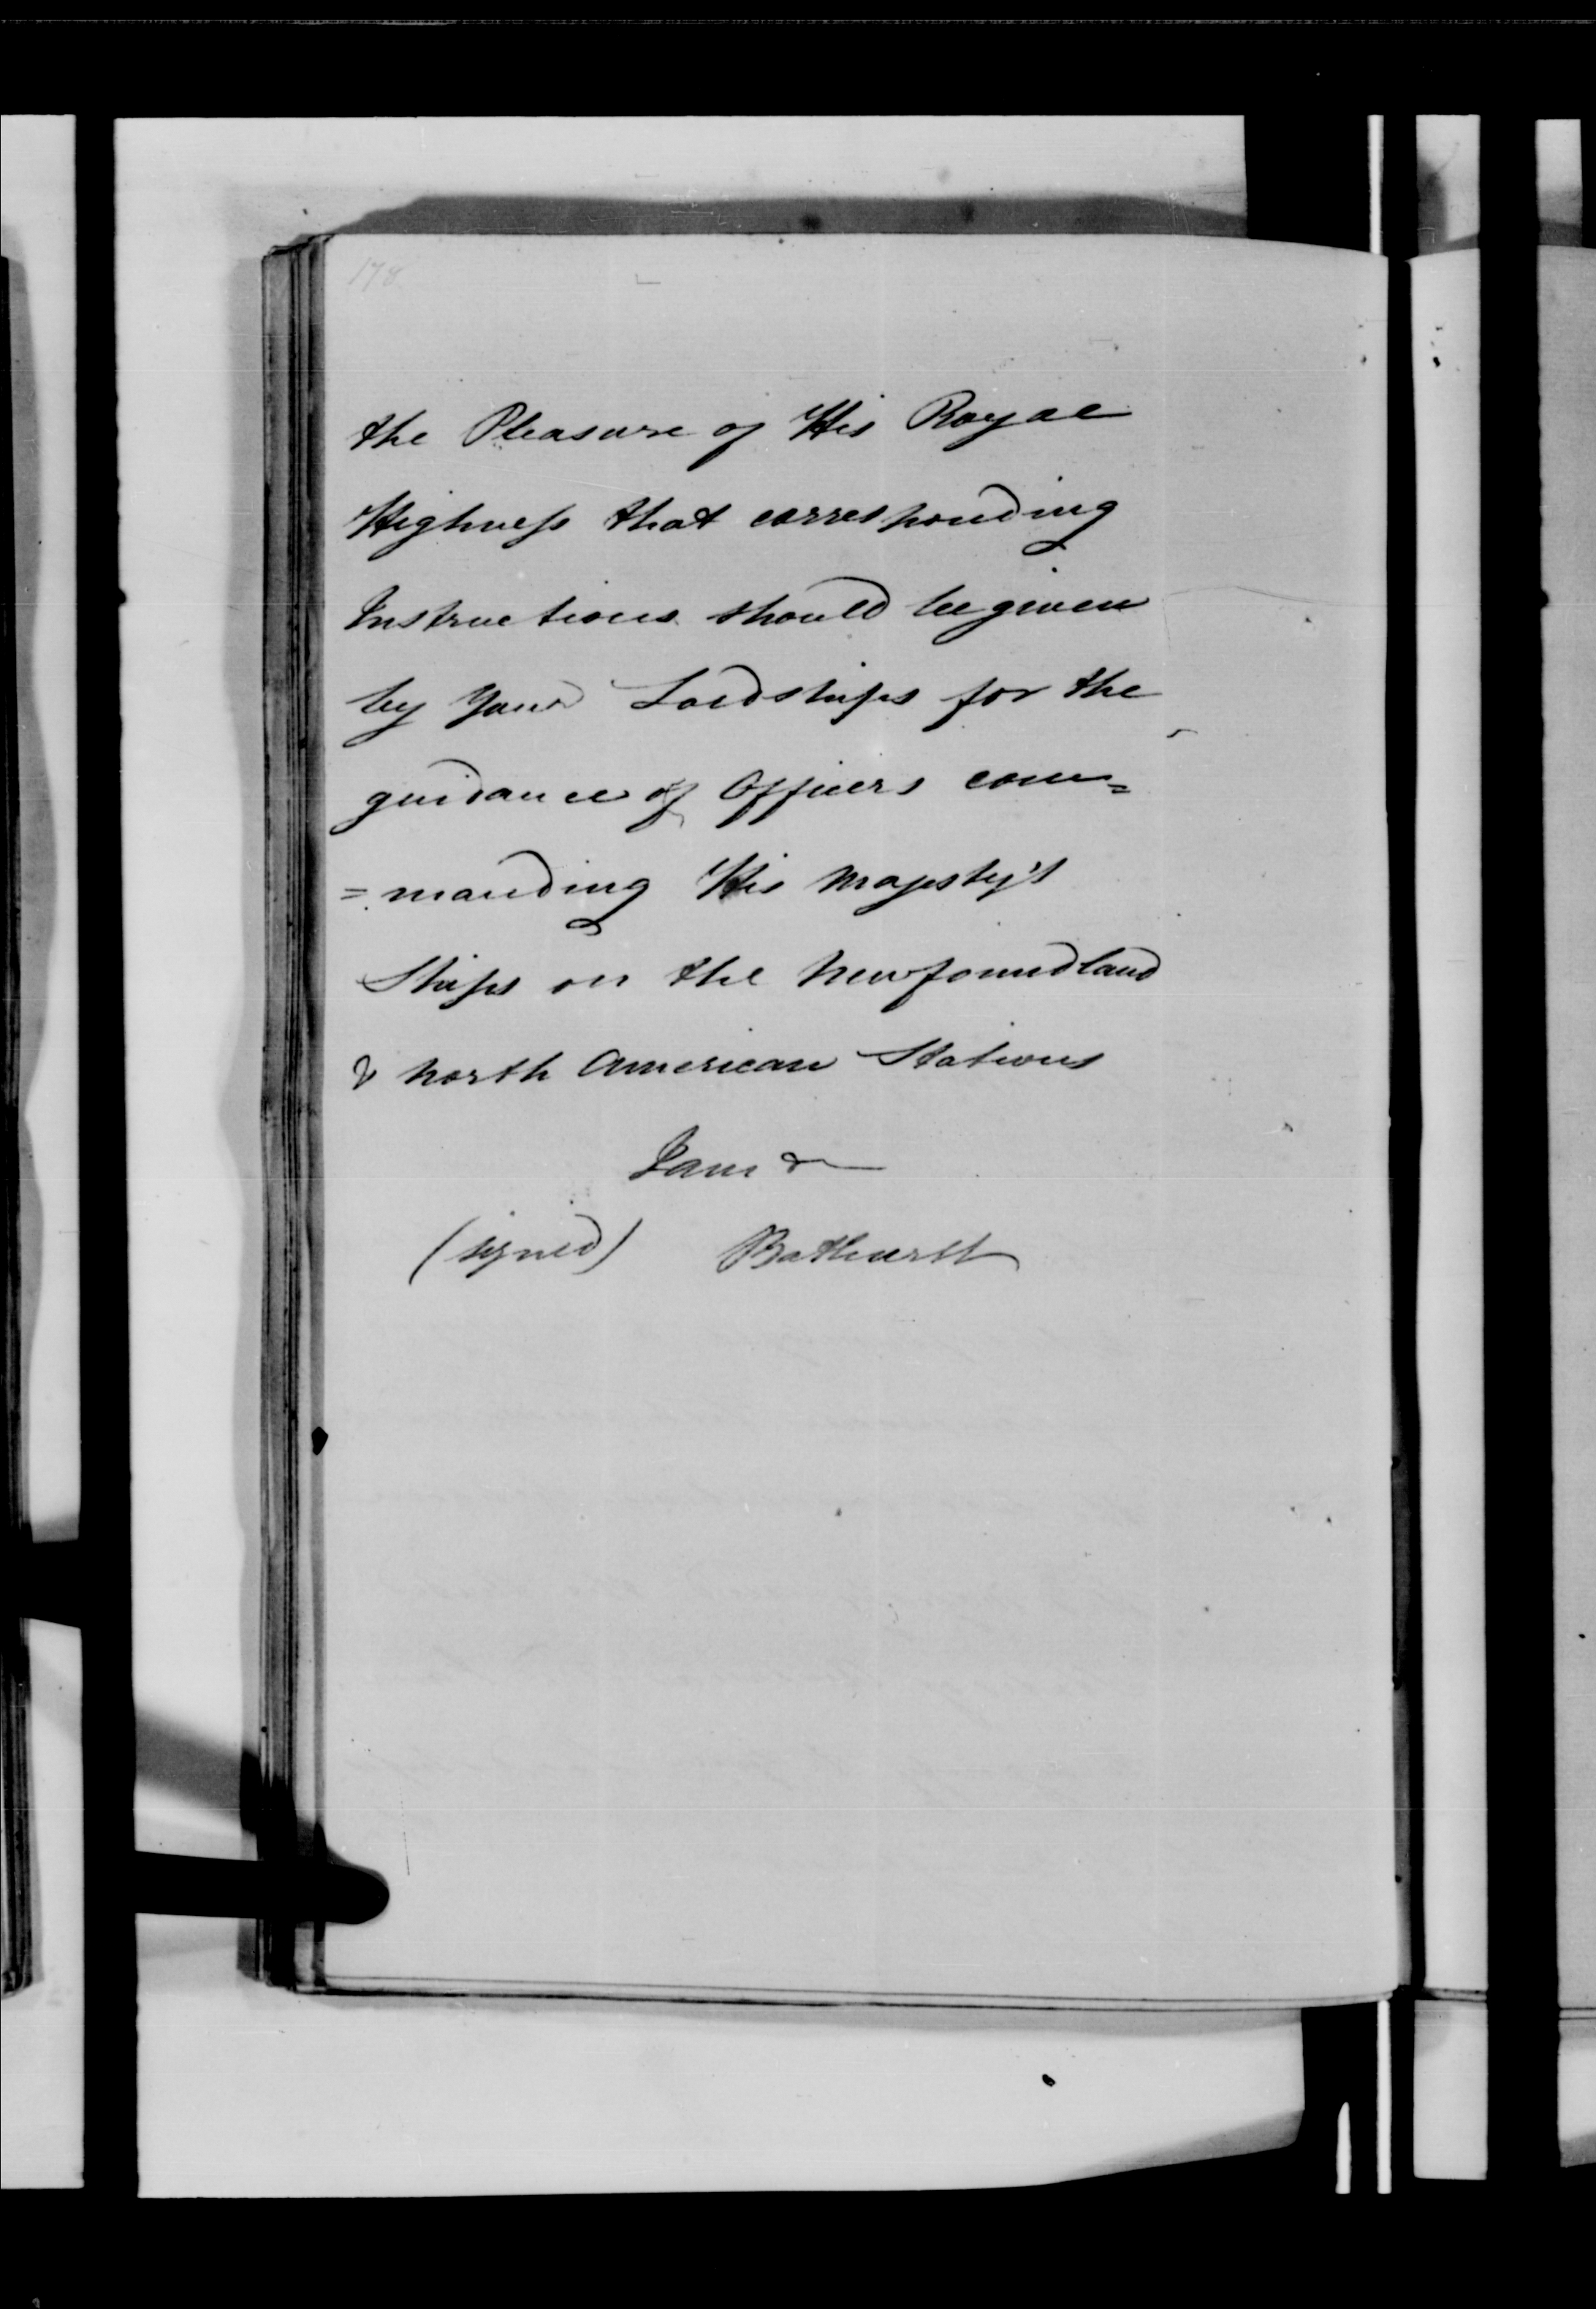 178
the Pleasure of His Royal
Highness that corresponding
Instructions should be given
by Your Lordships for the
guidance of Officers com=
=manding His Majesty's
Ships on the Newfoundland
& North American Stations
I am &
(signed) Bathurst